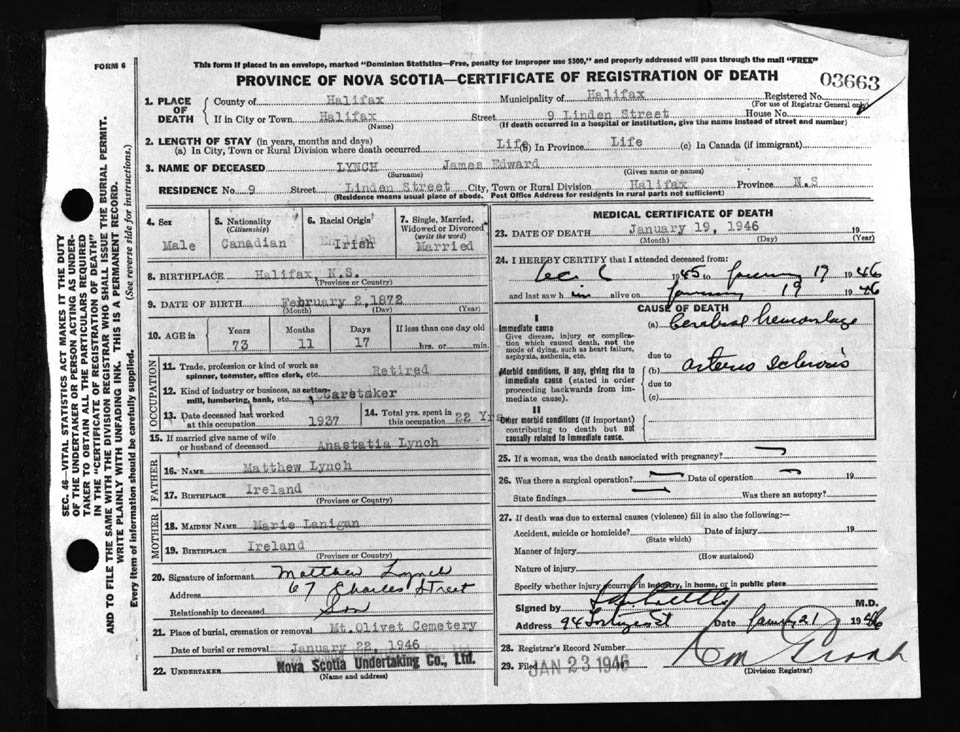 FORM 6
This form if placed in an envelope, marked "Dominion Statistics—Free, penalty for improper use $300," and properly addressed will pass through the mail "FREE"
PROVINCE OF NOVA SCOTIA—CERTIFICATE OF REGISTRATION OF DEATH
03663
1. PLACE OF DEATH
County of Halifax Municipality of Halifax Registered No.
(For use of Registrar General only)
If in City or Town Halifax Street 9 Linden Street House No.
(Name) (If death occurred in a hospital or institution, give the name instead of street and number)
2. LENGTH OF STAY (in years, months and days)
(a) In City, Town or Rural Division where death occurred Life (b) In Province Life (c) In Canada (if immigrant)
3. NAME OF DECEASED LYNCH James Edward
(Surname) (Given name or names)
RESIDENCE No. 9 Street Linden Street City, Town or Rural Division Halifax Province N.S
(Residence means usual place of abode. Post Office Address for residents in rural parts not sufficient)
4. Sex
Male
5. Nationality
(Citizenship)
Canadian
6. Racial Origin
Irish
7. Single, Married, Widowed or Divorced
(write the word)
Married
8. BIRTHPLACE Halifax, N.S.
(Province or Country)
9. DATE OF BIRTH February 2, 1872
(Month) (Day) (Year)
10. AGE in
Years Months Days If less than one day old
73 11 17 hrs. or min.
OCCUPATION
11. Trade, profession or kind of work as
spinner, teamster, office clerk, etc. Retired
12. Kind of industry or business, as cotton-
mill, lumbering, bank, etc. Caretaker
13. Date deceased last worked
at this occupation 1937
14. Total yrs. spent in
this occupation 22 Yrs
15. If married give name of wife
or husband of deceased Anastatia Lynch
FATHER
16. NAME Matthew Lynch
17. BIRTHPLACE Ireland
(Province or Country)
MOTHER
18. MAIDEN NAME Marie Lanigan
19. BIRTHPLACE Ireland
(Province or Country)
20. Signature of informant Matthew Lynch
Address 67 Charles Street
Relationship to deceased Son
21. Place of burial, cremation or removal Mt. Olivet Cemetery
Date of burial or removal January 22, 1946
22. UNDERTAKER Nova Scotia Undertaking Co., Ltd.
(Name and address)
MEDICAL CERTIFICATE OF DEATH
23. DATE OF DEATH January 19, 1946 19
(Month) (Day) (Year)
24. I HEREBY CERTIFY that I attended deceased from:
1945 to January 17 1946
and last saw him alive on January 19 1946
CAUSE OF DEATH
I
Immediate cause
Give disease, injury or complication which caused death, not the mode of dying, such as heart failure, asphyxia, asthenia, etc.
(a) Cerebral hemorrhage
due to
Morbid conditions, if any, giving rise to immediate cause (stated in order proceeding backwards from immediate cause)
(b) arterio sclerosis
due to
(c)
II
Other morbid conditions (if important) contributing to death but not causally related to immediate cause.
25. If a woman, was the death associated with pregnancy?
26. Was there a surgical operation? Date of operation 19
State findings Was there an autopsy?
27. If death was due to external causes (violence) fill in also the following:—
Accident, suicide or homicide? Date of injury 19
(State which)
Manner of injury
(How sustained)
Nature of injury
Specify whether injury occurred in industry, in home, or in public place
Signed by M.D.
Address 94 Date January 21 1946
28. Registrar's Record Number
29. Filed JAN 23 1946
(Division Registrar)
SEC. 48—VITAL STATISTICS ACT MAKES IT THE DUTY
OF THE UNDERTAKER OR PERSON ACTING AS UNDER-
TAKER TO OBTAIN ALL THE PARTICULARS REQUIRED
IN THE "CERTIFICATE OF REGISTRATION OF DEATH"
AND TO FILE THE SAME WITH THE DIVISION REGISTRAR WHO SHALL ISSUE THE BURIAL PERMIT.
WRITE PLAINLY WITH UNFADING INK. THIS IS A PERMANENT RECORD.
Every item of information should be carefully supplied. (See reverse side for instructions.)